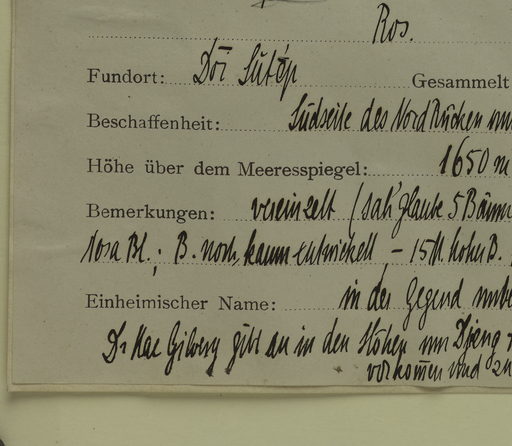 Ros.
Fundort: Dōi Sutép Gesammelt
Beschaffenheit: Südseite des Nord Rückens
Höhe über dem Meeresspiegel: 1650 m
Bemerkungen: vereinzelt (sah glaube 5 Bäume
Rosa Bl.; B. noch kaum entwickelt, – 15 M. hoher B.
Einheimischer Name: in der Gegend
Dr Mac Gilvery gibt an in den Höhen um Djeng
vorkommen und